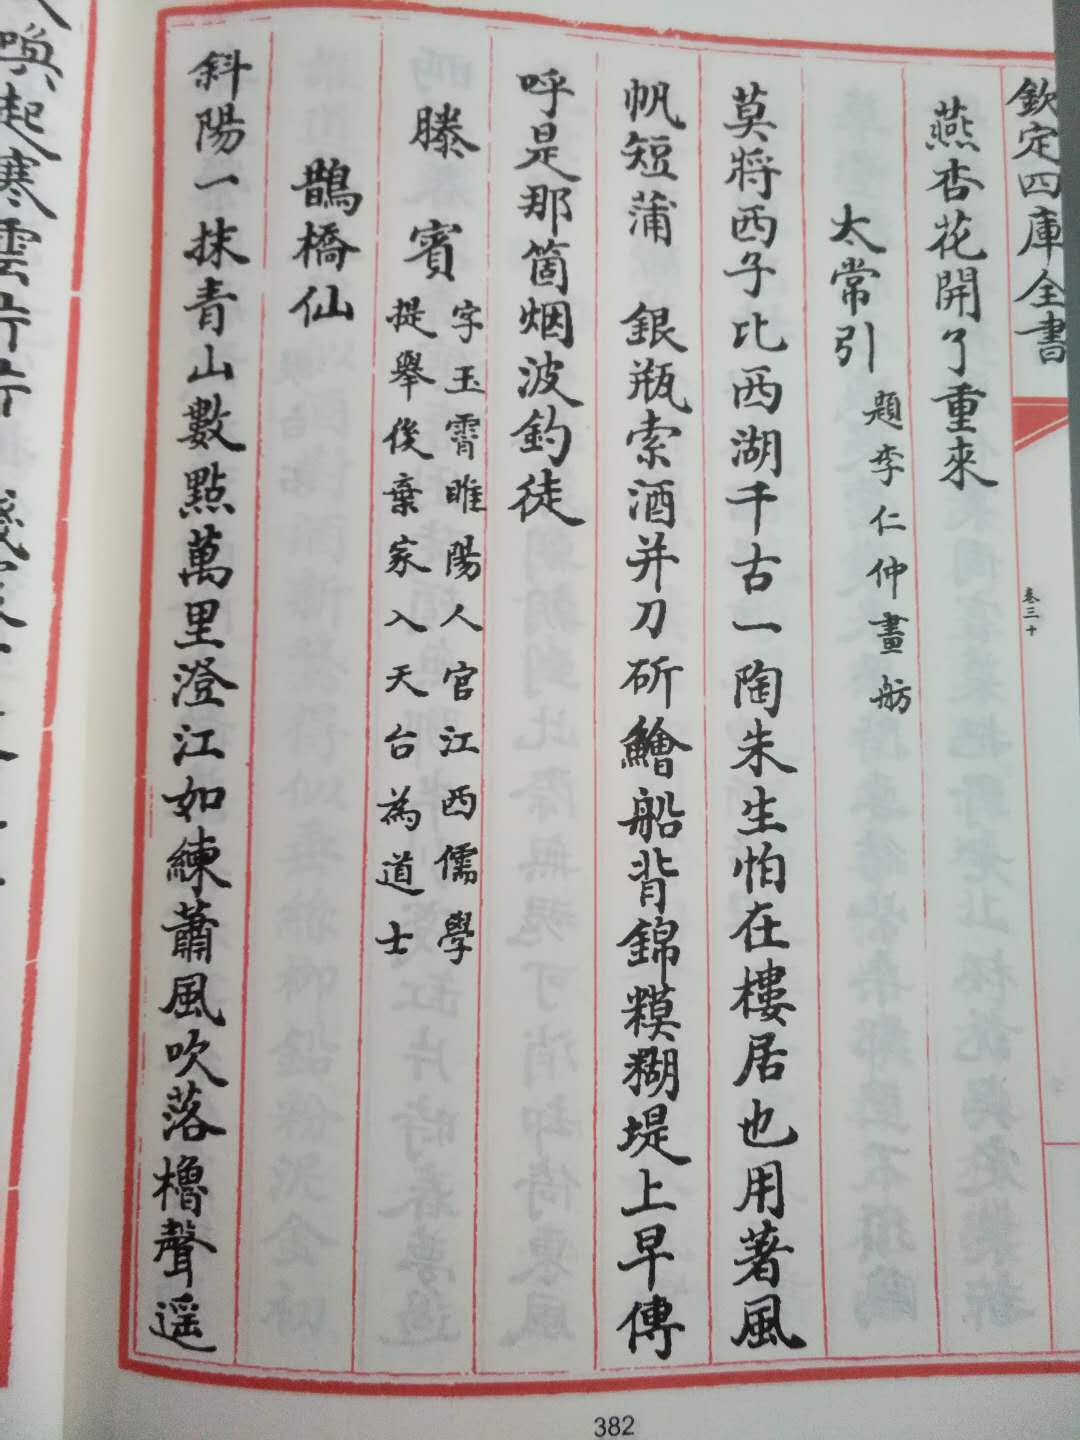 欽定四庫全書
卷三十
燕杏花開了重來
太常引 題李仁仲畫舫
莫將西子比西湖千古一陶朱生怕在樓居也用著風
帆短蒲 銀瓶索酒并刀斫鱠船背錦糢糊堤上早傳
呼是那箇烟波釣徒
滕賓 字玉霄睢陽人官江西儒學
提舉後棄家入天台為道士
鵲橋仙
斜陽一抹青山數點萬里澄江如練蕭風吹落櫓聲遥
喚起寒雲片片
382